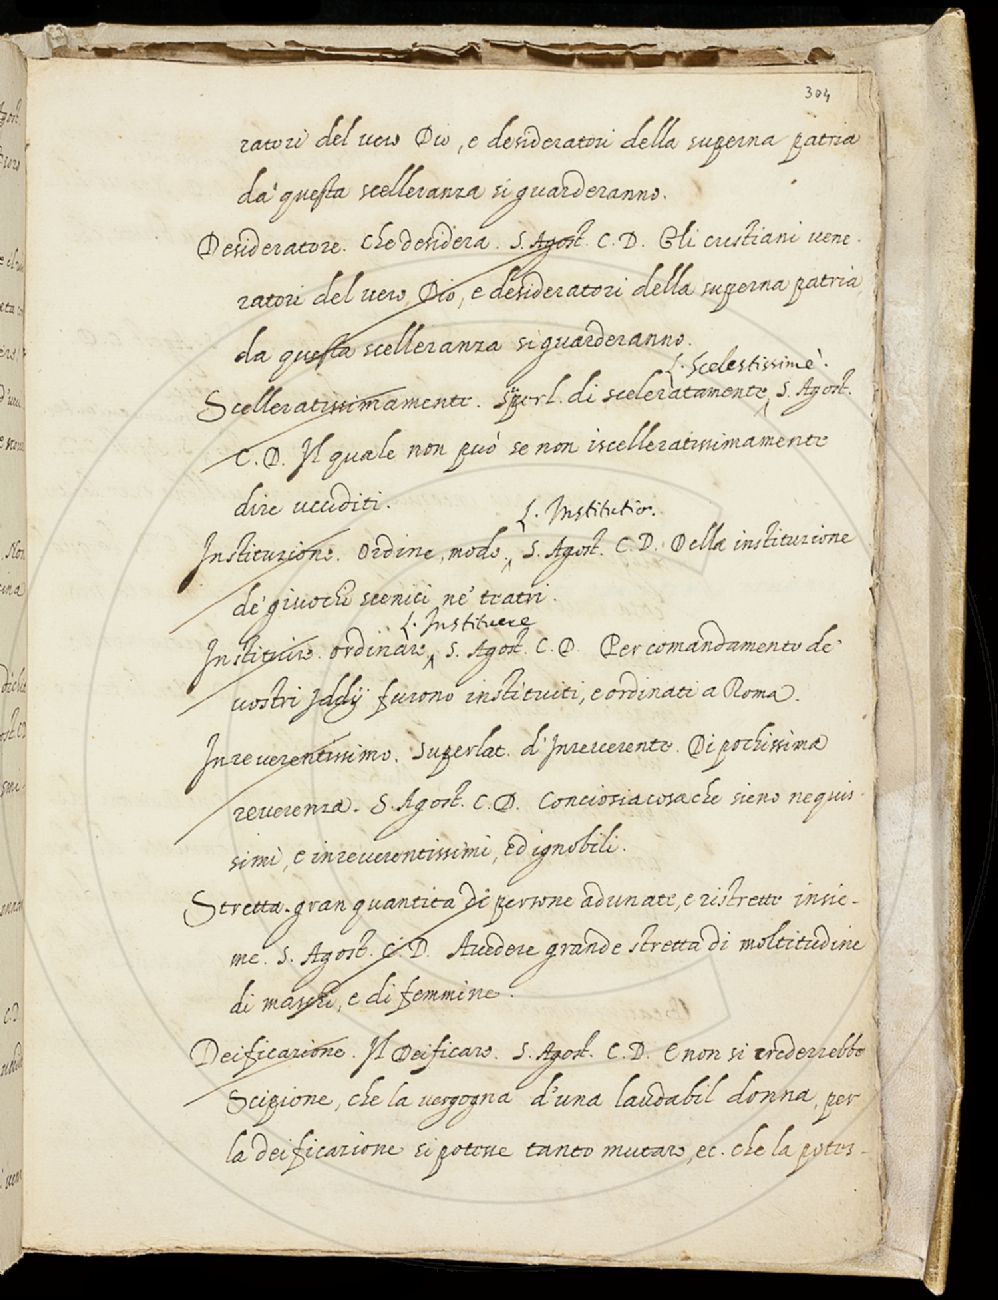 304
ratori del vero Dio, e desideratori della superna patria
da questa scelleranza si guarderanno.
Desideratore. Che desidera. S. Agost. C. D. Gli cristiani vene-
ratori del vero Dio, e desideratori della superna patria
da questa scelleranza si guarderanno.
L. Scelestissimè.
Scelleratissimamente. Superl. di sceleratamente, S. Agost.
C. D. Il quale non può se non iscelleratissimamente
dire ucciditi.
L. Institutio.
Instituzione. Ordine, modo, S. Agost. C. D. Della instituzione
de' giuochi scenici ne' teatri.
L. Instituere
Instituire. ordinare, S. Agost. C. D. Per comandamento de'
vostri Iddij furono instituiti, e ordinati a Roma.
Inreverentissimo. Superlat. d'Inreverente. Di pochissima
reverenza. S. Agost. C. D. Conciosiacosache sieno nequis-
simi, e inreverentissimi, ed ignobili.
Stretta. gran quantita di persone adunate, e ristrette insie-
me. S. Agost. C. D. Avedere grande stretta di moltitudine
di maschi, e di femmine.
Deificazione. Il Deificare. S. Agost. C. D. E non si crederrebbe
Scipione, che la vergogna d'una laudabil donna, per
la deificazione si potesse tanto mutare, ec. che la potes-